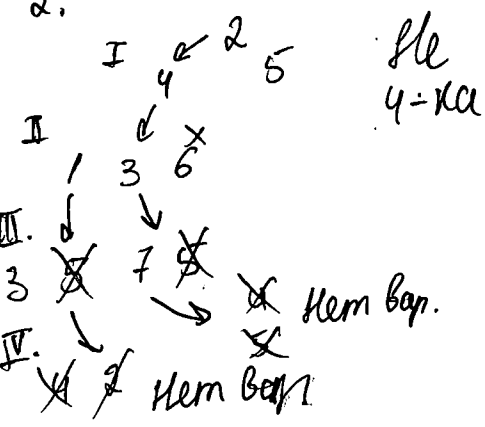 2.
I 2 5
4
Не
4-ка
II 1 3 6
III. 3 5 7 5
4 Нет вар.
5
IV. 4 2 Нет вар